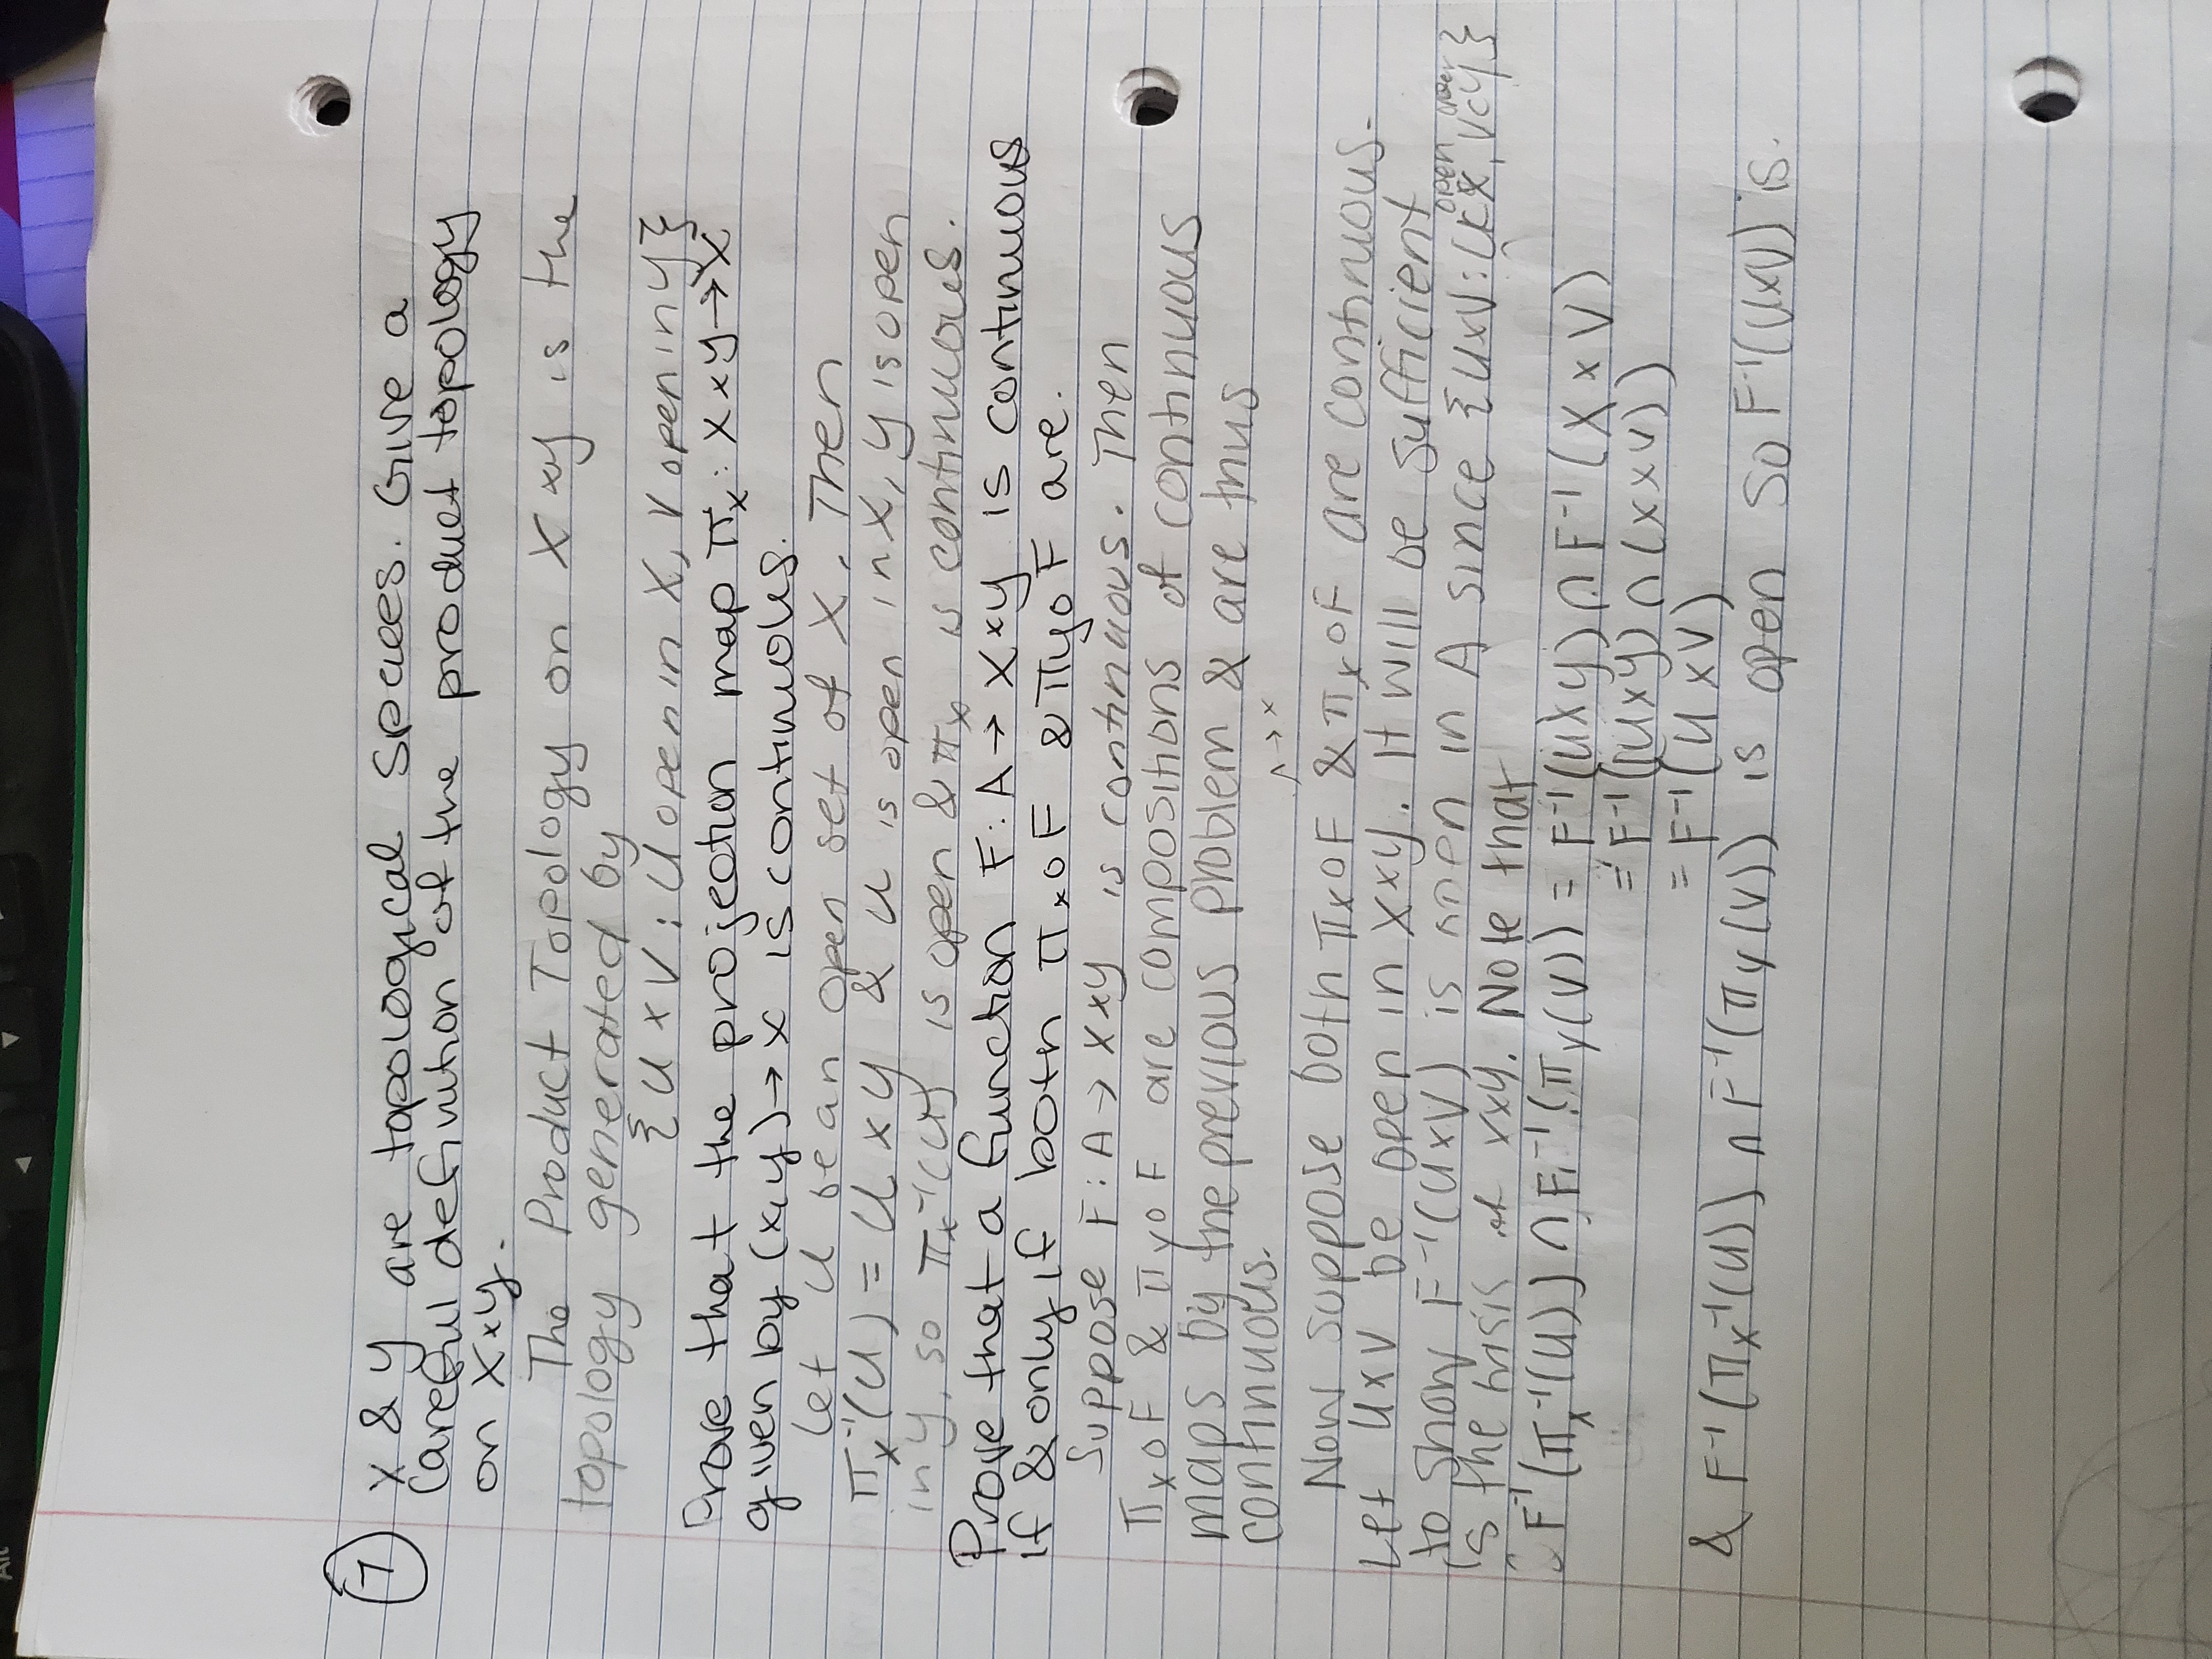 Alt
7 X & Y are topological spaces. Give a
careful definition of the product topology
on X×Y.
The Product Topology on X×Y is the
topology generated by
{U×V : U open in X, V open in Y}
Prove that the projection map πₓ: X×Y→X
given by (x,y)→x is continuous.
Let U be an open set of X. Then
πₓ⁻¹(U) = U×Y & U is open in X, Y is open
in Y, so πₓ⁻¹(U) is open & πₓ is continuous.
Prove that a function F: A→X×Y is continuous
if & only if both πₓ∘F & πy∘F are.
Suppose F: A→X×Y is continuous. Then
πₓ∘F & πy∘F are compositions of continuous
maps by the previous problem & are thus
continuous.
A→X
Now suppose both πₓ∘F & πₓ∘F are continuous.
Let U×V be open in X×Y. It will be sufficient
to show F⁻¹(U×V) is open in A since {U×V: U⊂X, V⊂Y}
open open
is the basis of X×Y. Note that
F⁻¹(πₓ⁻¹(U)) ∩ F⁻¹(πy(V)) = F⁻¹(U×Y) ∩ F⁻¹(X×V)
= F⁻¹((U×Y) ∩ (X×V))
= F⁻¹(U×V)
& F⁻¹(πₓ⁻¹(U)) ∩ F⁻¹(πy(V)) is open so F⁻¹(U×V) is.